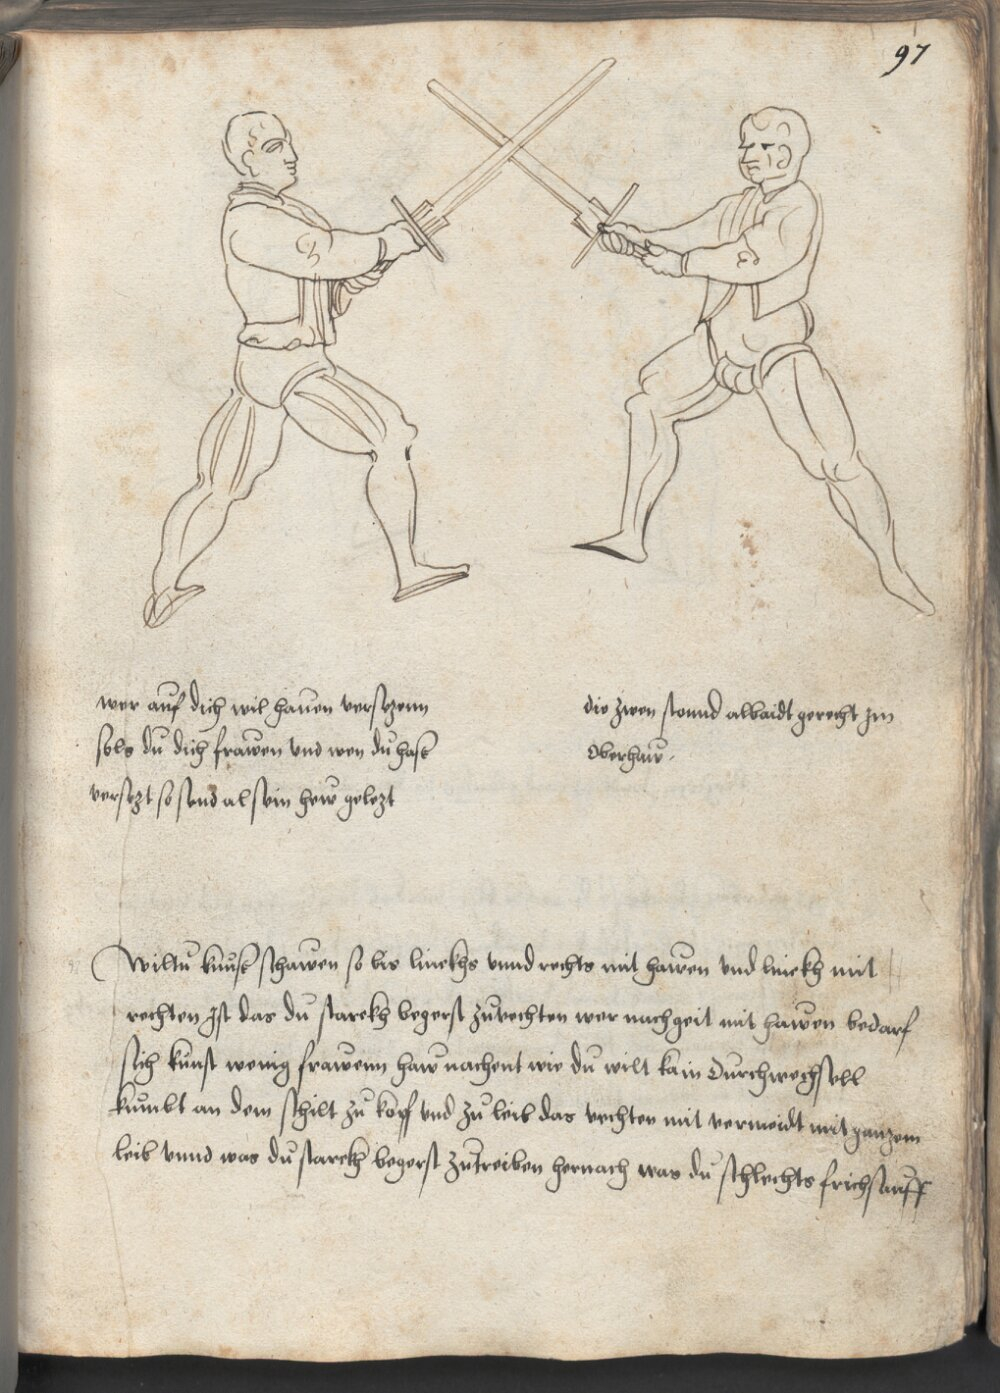 97
wer auf dich wil hauen versezenn
sols du dich frawen vnd wen du hast
versezt so send al sein hew gelezt
die zwen stonnd albaidt gerecht jm
Oberhaw.
Wiltu kunst schawen so bis linckhs vnnd rechts mit hawen vnd linckh mit
rechten Jst das du starckh begerst zu vechten wer nach geit mit hawen bedarf
sich kunst wenig frawenn haw nachent wie du wilt kain Durchwechsell
kumbt an dem schilt zu kopf vnd zu leib das vechten mit vermeidt mit ganzem
leib vnnd was du starckh begerst zu treiben hernach was du schlechts frichs auff